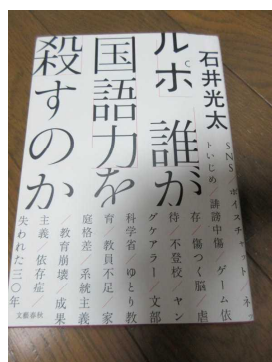 石井光太
ルポ 誰が
「国語力」を
殺すのか
SNS/ボイスチャット/ネッ
トいじめ/誹謗中傷 ゲーム依
存/傷つく脳 虐
待 不登校 ヤン
グケアラー/文部
科学省 ゆとり教
育 教員不足 家
庭格差/系統主義
/教育崩壊 成果
主義/依存症/
失われた三〇年
文藝春秋